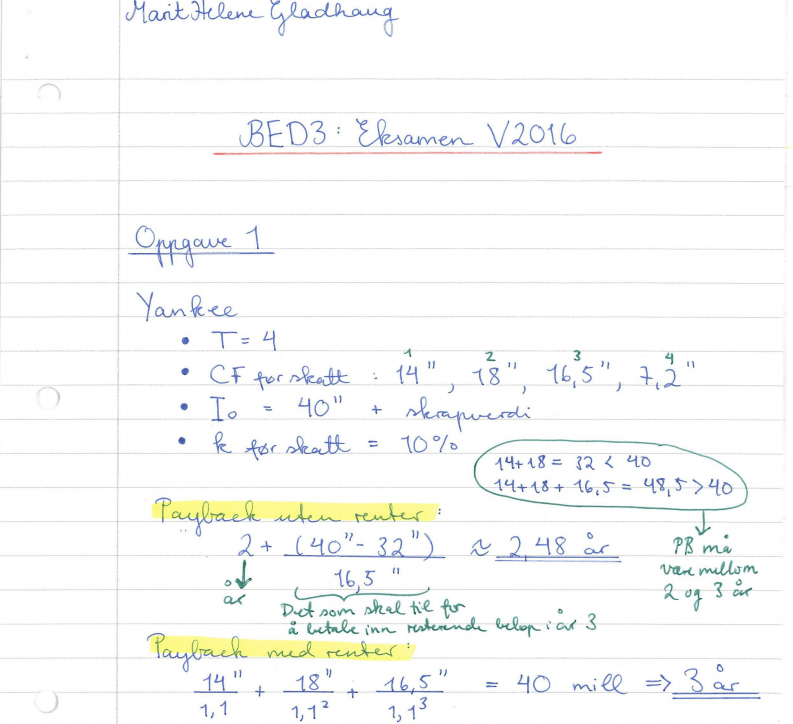 Marit Helene Gladhaug
BED3: Eksamen V2016
Oppgave 1
Yankee
• T = 4
1 2 3 4
• CF før skatt : 14", 18", 16,5", 7,2"
• I₀ = 40" + skrapverdi
• k før skatt = 10%
14+18 = 32 < 40
14+18 + 16,5 = 48,5 > 40
PB må
være mellom
2 og 3 år
Payback uten renter:
2 + (40" - 32") ≈ 2,48 år
16,5 "
år
Det som skal til for
å betale inn resterende beløp i år 3
Payback med renter:
14" + 18" + 16,5" = 40 mill ⇒ 3 år
1,1 1,1² 1,1³